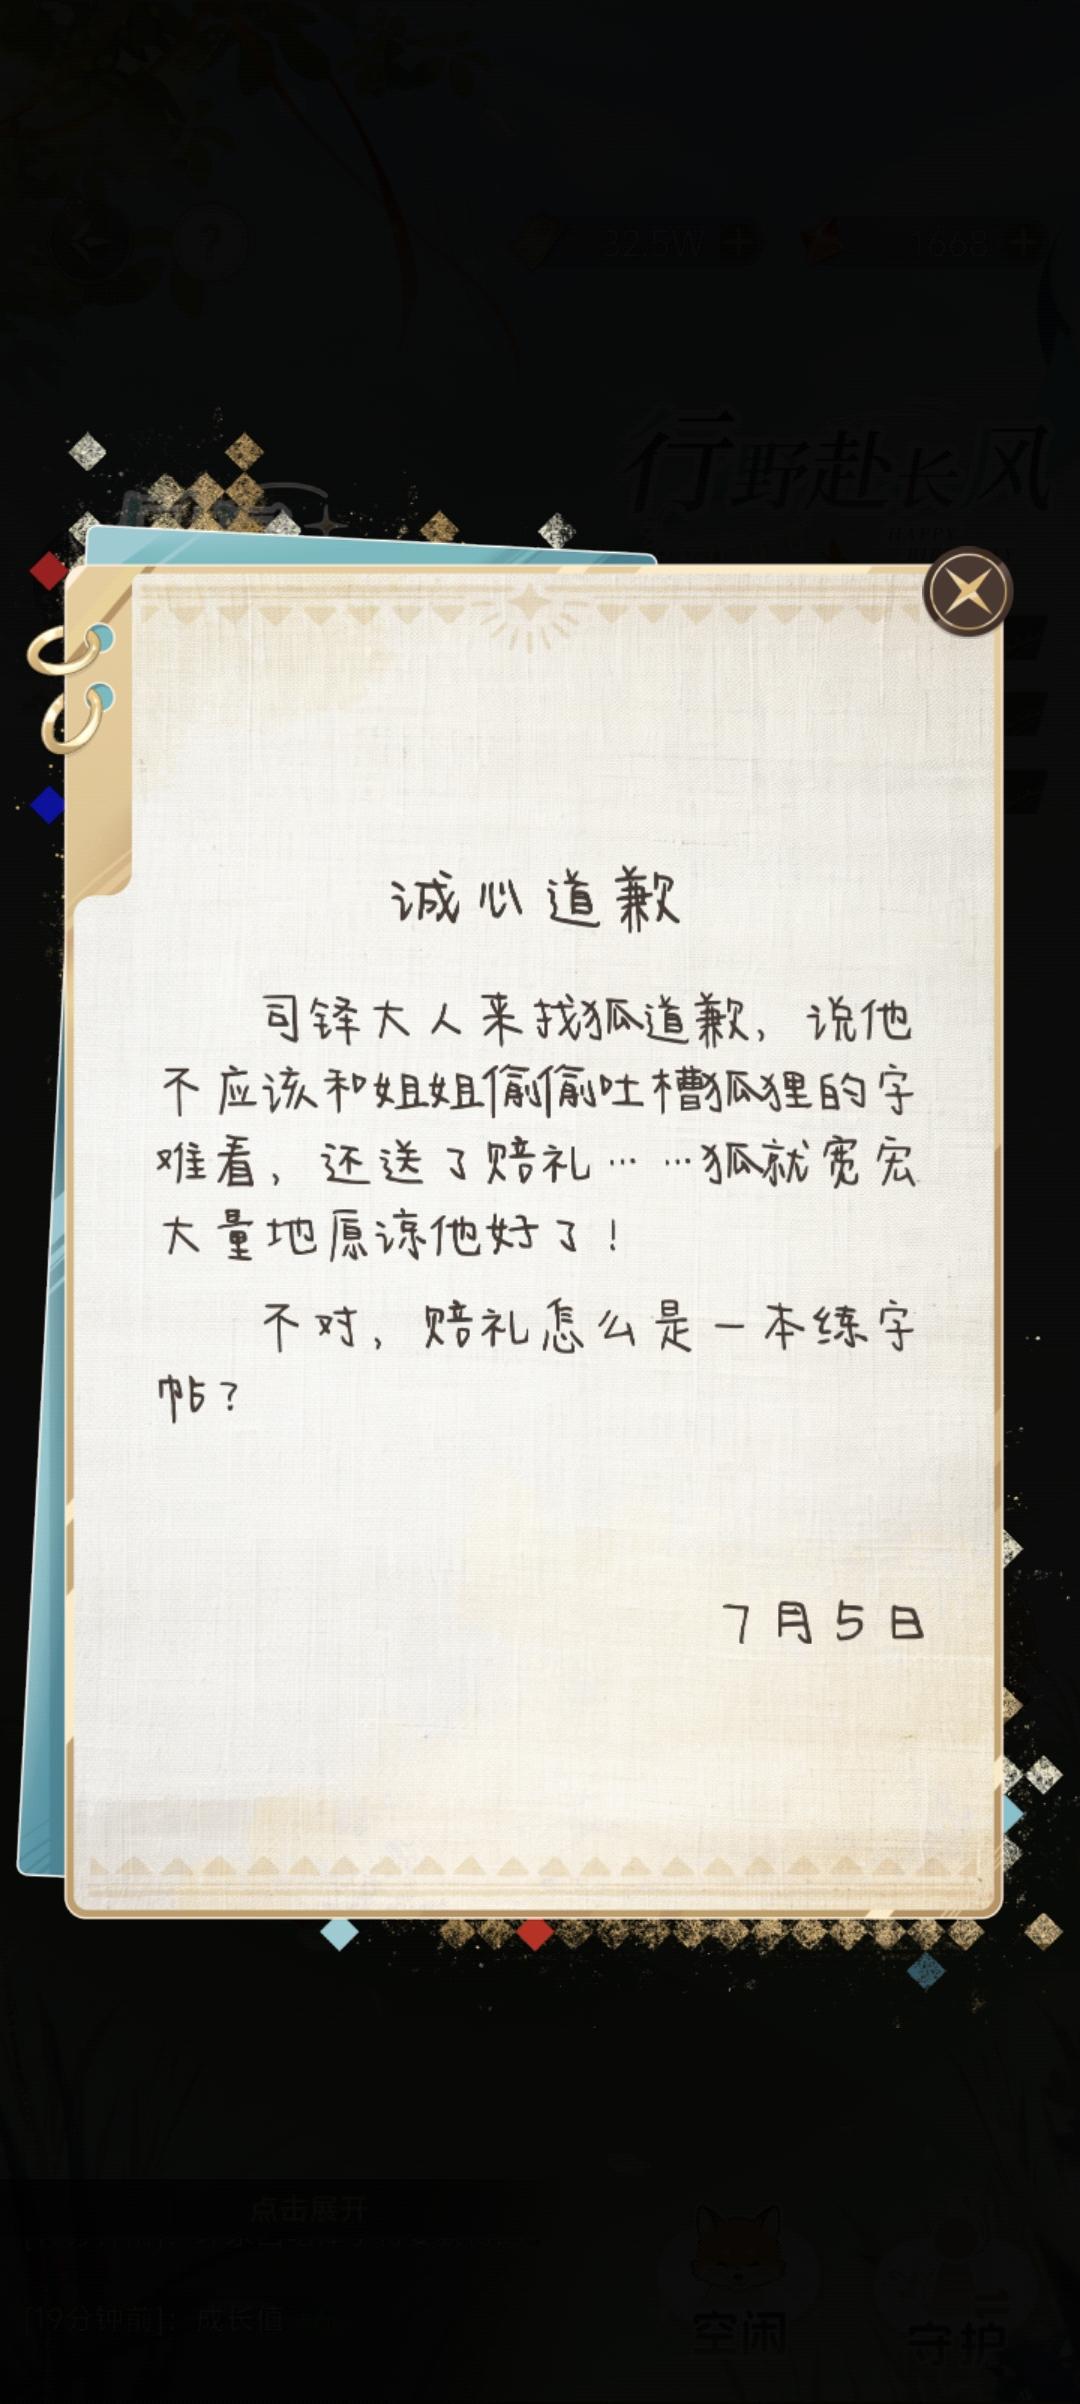 32.5W
1668
行野赴长风
HAPPY
诚心道歉
司铎大人来找狐道歉，说他
不应该和姐姐偷偷吐槽狐狸的字
难看，还送了赔礼……狐就宽宏
大量地原谅他好了！
不对，赔礼怎么是一本练字
帖？
7月5日
点击展开
[19分钟前]：成长值
空闲
守护